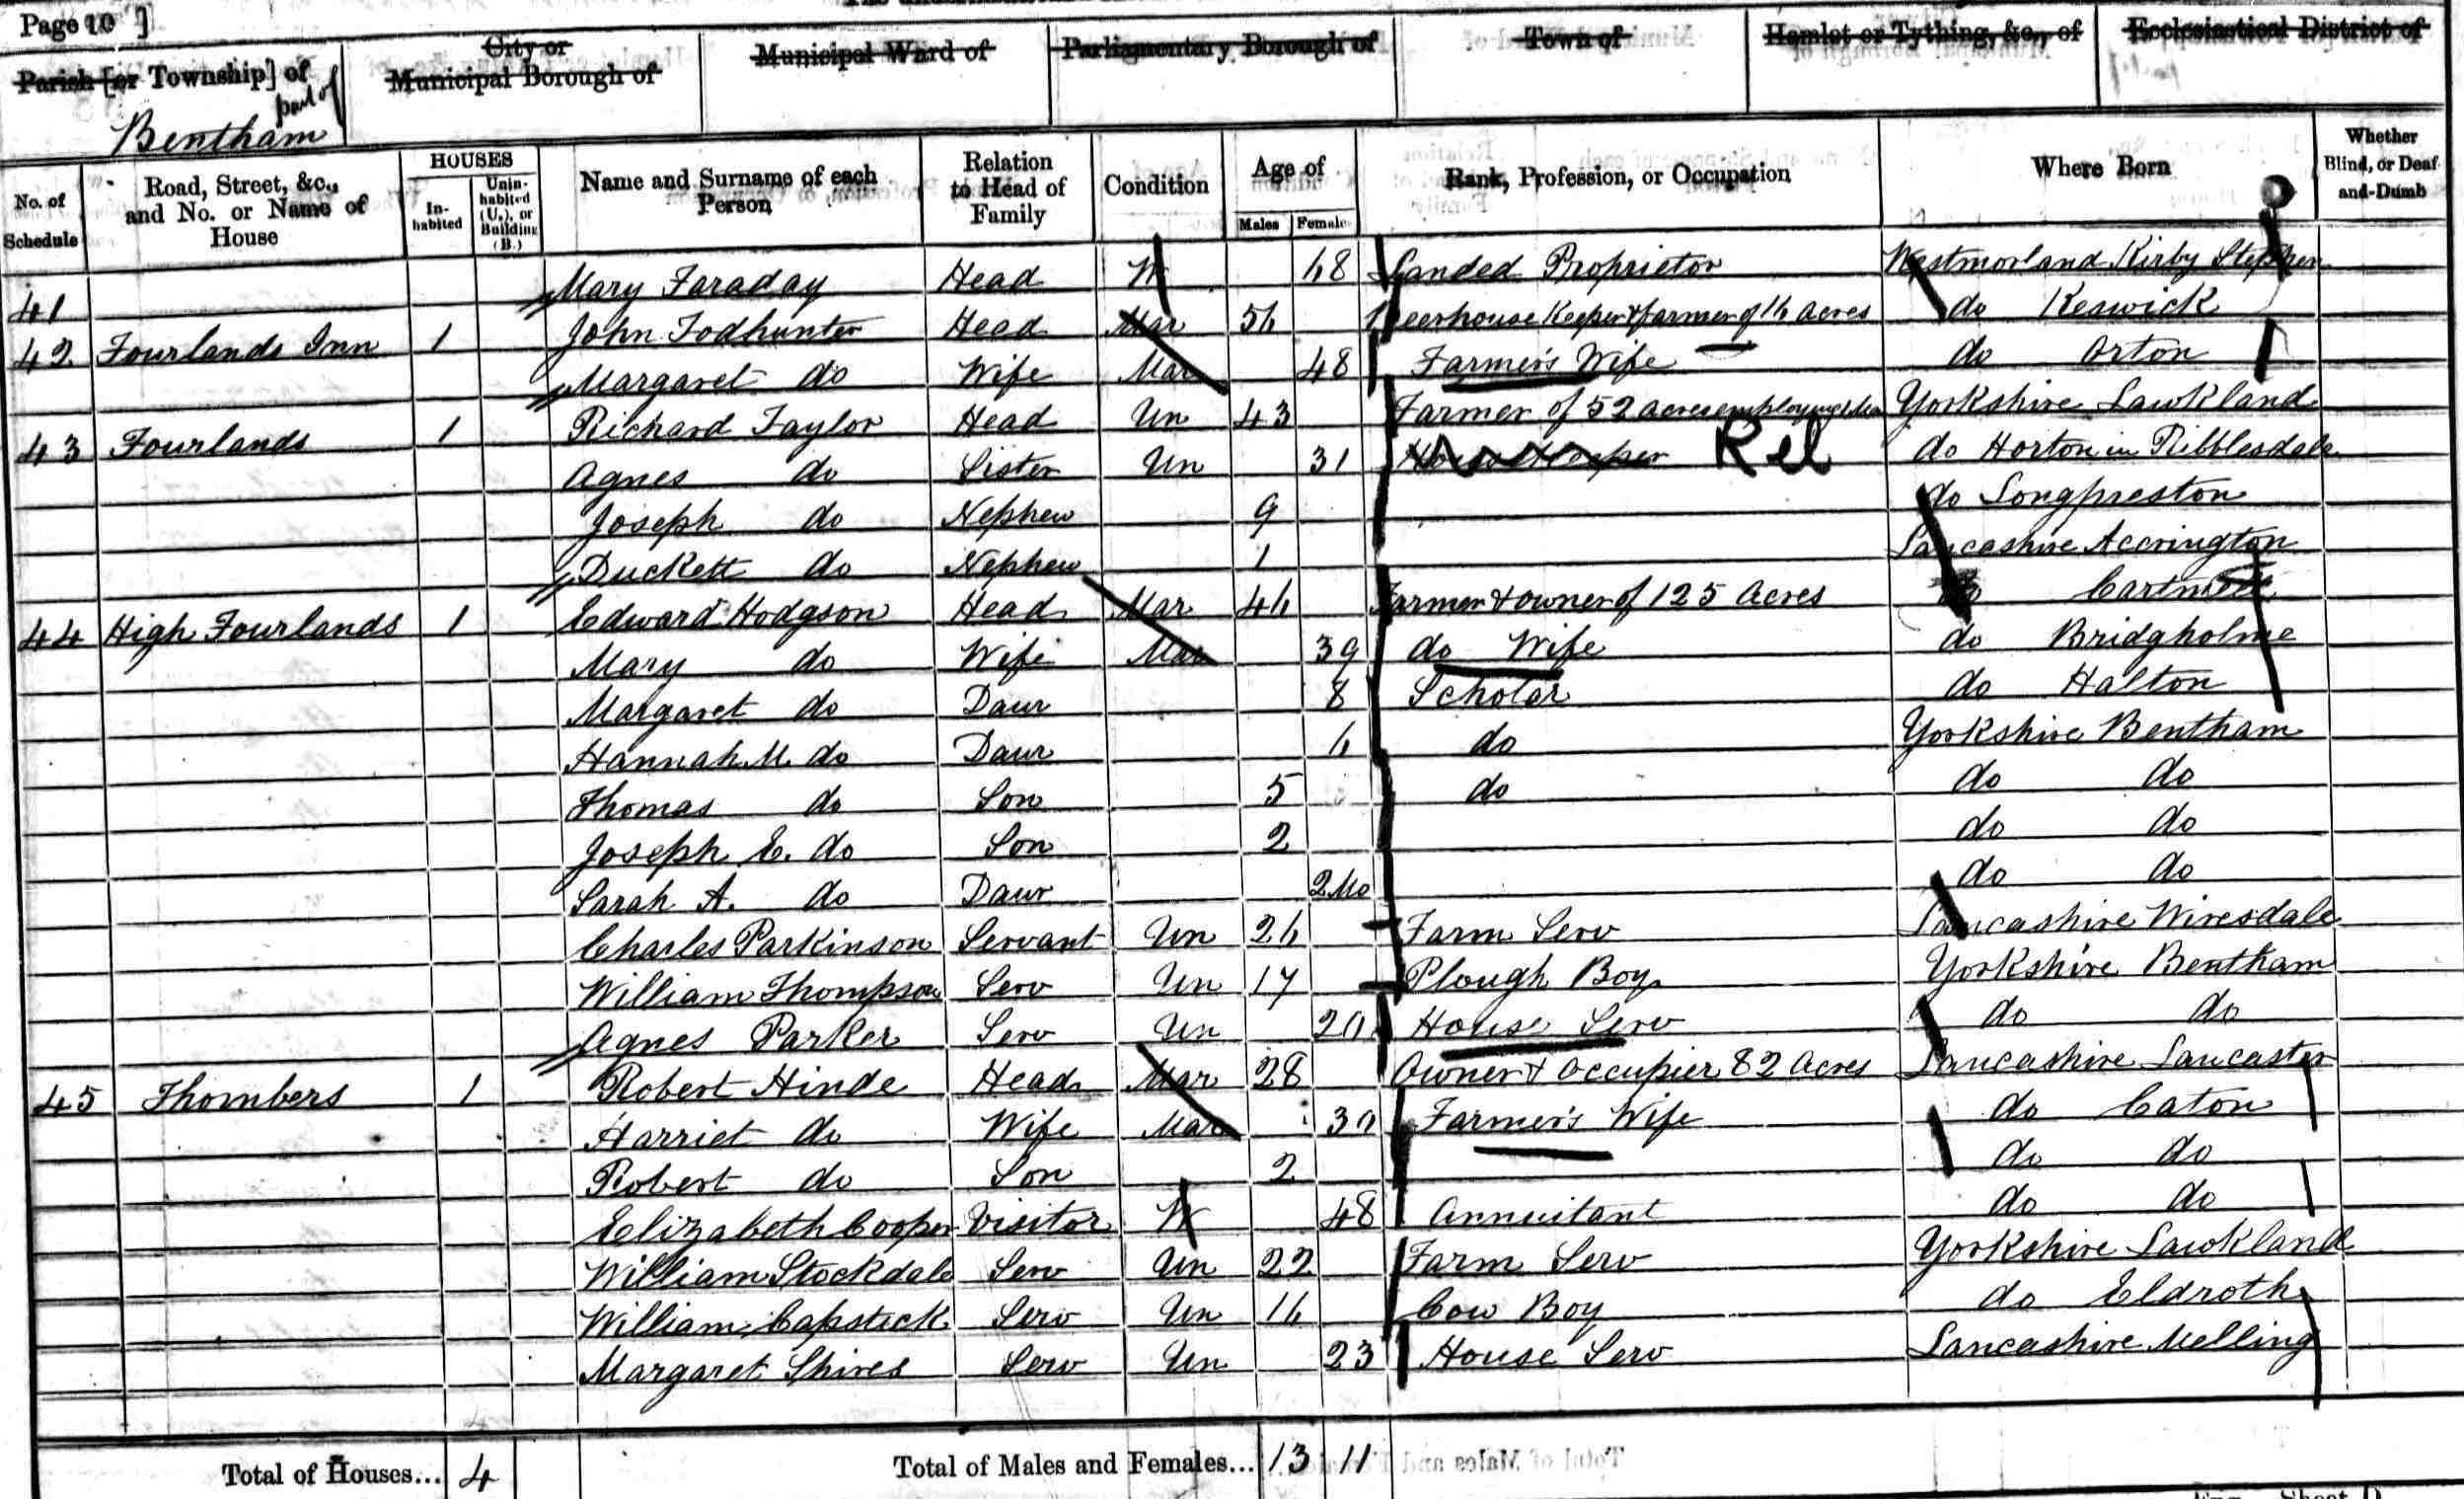 Page 10 ]
Parish [or Township] of
part of
Bentham
City or
Municipal Borough of
Municipal Ward of
Parliamentary Borough of
Town of
Hamlet or Tything, &c., of
Ecclesiastical District of
No. of Schedule
Road, Street, &c., and No. or Name of House
HOUSES
Inhabited
Uninhabited (U.), or Building (B.)
Name and Surname of each Person
Relation to Head of Family
Condition
Age of
Males Females
Rank, Profession, or Occupation
Where Born
Whether Blind, or Deaf-and-Dumb
41 Mary Faraday Head W 68 Landed Proprietor Westmorland Kirby Stephen
42 Fourlands Inn 1 John Todhunter Head Mar 56 Beerhouse Keeper & farmer of 16 Acres do Keswick
Margaret do Wife Mar 48 Farmer's Wife do Orton
43 Fourlands 1 Richard Taylor Head Un 43 Farmer of 52 acres employing Yorkshire Lawkland
Agnes do Sister Un 31 Housekeeper Rel do Horton in Ribblesdale
Joseph do Nephew 9 do Longpreston
Duckett do Nephew 1 Lancashire Accrington
44 High Fourlands 1 Edward Hodgson Head Mar 46 Farmer & owner of 125 Acres do Cartmel
Mary do Wife Mar 39 do Wife do Bridgholme
Margaret do Daur 8 Scholar do Halton
Hannah M. do Daur 6 do Yorkshire Bentham
Thomas do Son 5 do do do
Joseph E. do Son 2 do do
Sarah A. do Daur 2 Mo do do
Charles Parkinson Servant Un 26 Farm Serv Lancashire Wiresdale
William Thompson Serv Un 17 Plough Boy Yorkshire Bentham
Agnes Parker Serv Un 20 House Serv do do
45 Thornbers 1 Robert Hinde Head Mar 28 Owner & Occupier 82 Acres Lancashire Lancaster
Harriet do Wife Mar 30 Farmer's Wife do Caton
Robert do Son 2 do do
Elizabeth Cooper Visitor W 48 Annuitant do do
William Stockdale Serv Un 22 Farm Serv Yorkshire Lawkland
William Capstick Serv Un 16 Cow Boy do Eldroth
Margaret Shires Serv Un 23 House Serv Lancashire Melling
Total of Houses... 4 Total of Males and Females... 13 11